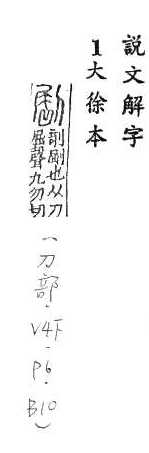 說文解字
1大徐本
𠜾
剞𠜾也从刀
屈聲九勿切
（刀部．V4下－P6．B10）